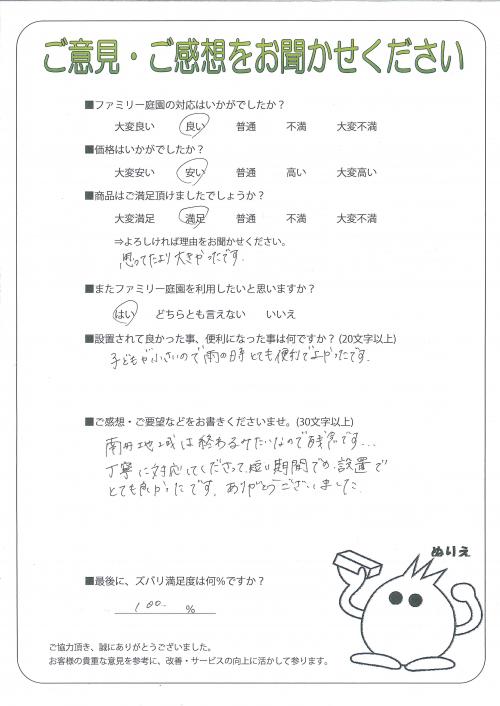 ご意見・ご感想をお聞かせください
■ファミリー庭園の対応はいかがでしたか？
大変良い 良い 普通 不満 大変不満
■価格はいかがでしたか？
大変安い 安い 普通 高い 大変高い
■商品はご満足頂けましたでしょうか？
大変満足 満足 普通 不満 大変不満
⇒よろしければ理由をお聞かせください。
思ってたより大きかったです.
■またファミリー庭園を利用したいと思いますか？
はい どちらとも言えない いいえ
■設置されて良かった事、便利になった事は何ですか？(20文字以上)
子どもが小さいので雨の日時とても便利でよかったです.
■ご感想・ご要望などをお書きくださいませ。(30文字以上)
南丹地域は終わるみたいなので残念です...
丁寧に対応してくださって、短い期間での設置で
とても良かったです。ありがとうございました
ぬりえ
■最後に、ズバリ満足度は何％ですか？
100 ％
ご協力頂き、誠にありがとうございました。
お客様の貴重な意見を参考に、改善・サービスの向上に活かして参ります。